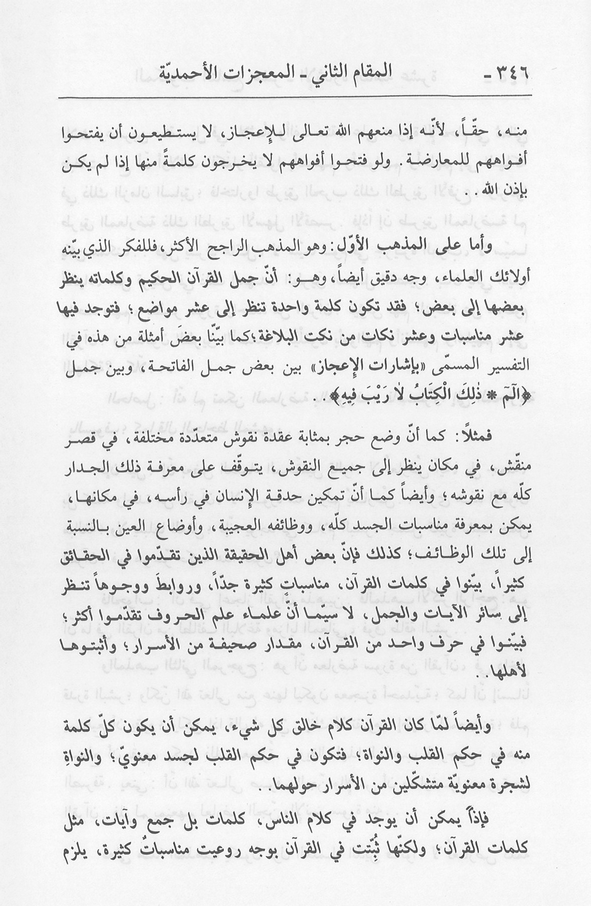 ٣٤٦ - المقام الثاني - المعجزات الأحمديّة
منه، حقّاً، لأنّه إذا منعهم الله تعالى للإعجاز، لا يستطيعون أن يفتحوا
أفواههم للمعارضة. ولو فتحوا أفواههم لا يخرجون كلمةً منها إذا لم يكن
بإذن الله..
وأما على المذهب الأوّل: وهو المذهب الراجح الأكثر، فللفكر الذي بيّنه
أولائك العلماء، وجه دقيق أيضاً، وهو: أنّ جمل القرآن الحكيم وكلماته ينظر
بعضها إلى بعض؛ فقد تكون كلمة واحدة تنظر إلى عشر مواضع؛ فتوجد فيها
عشر مناسبات وعشر نكات من نكت البلاغة؛ كما بيّنّا بعضَ أمثلة من هذه في
التفسير المسمّى «بإشارات الإعجاز» بين بعض جمل الفاتحة، وبين جمل
﴿الٓمٓ * ذٰلِكَ الْكِتَابُ لَا رَيْبَ فِيهِ﴾..
فمثلًا: كما أنّ وضع حجر بمثابة عقدة نقوش متعدّدة مختلفة، في قصر
منقّش، في مكان ينظر إلى جميع النقوش، يتوقّف على معرفة ذلك الجدار
كلّه مع نقوشه؛ وأيضاً كما أنّ تمكين حدقة الإنسان في رأسه، في مكانها،
يمكن بمعرفة مناسبات الجسد كلّه، ووظائفه العجيبة، وأوضاع العين بالنسبة
إلى تلك الوظائف؛ كذلك فإنّ بعض أهل الحقيقة الذين تقدّموا في الحقائق
كثيراً، بيّنوا في كلمات القرآن، مناسباتٍ كثيرة جدّاً، وروابطَ ووجوهاً تنظر
إلى سائر الآيات والجمل، لا سيّما أنّ علماء علم الحروف تقدّموا أكثر؛
فبيّنوا في حرف واحد من القرآن، مقدار صحيفة من الأسرار؛ وأثبتوها
لأهلها..
وأيضاً لمّا كان القرآن كلام خالق كل شيء، يمكن أن يكون كلّ كلمة
منه في حكم القلب والنواة؛ فتكون في حكم القلب لجسد معنويّ؛ والنواةِ
لشجرة معنويّة متشكّلين من الأسرار حولهما..
فإذاً يمكن أن يوجد في كلام الناس، كلمات بل جمع وآيات، مثل
كلمات القرآن؛ ولكنّها ثُبّتت في القرآن بوجه روعيت مناسباتٌ كثيرة، يلزم